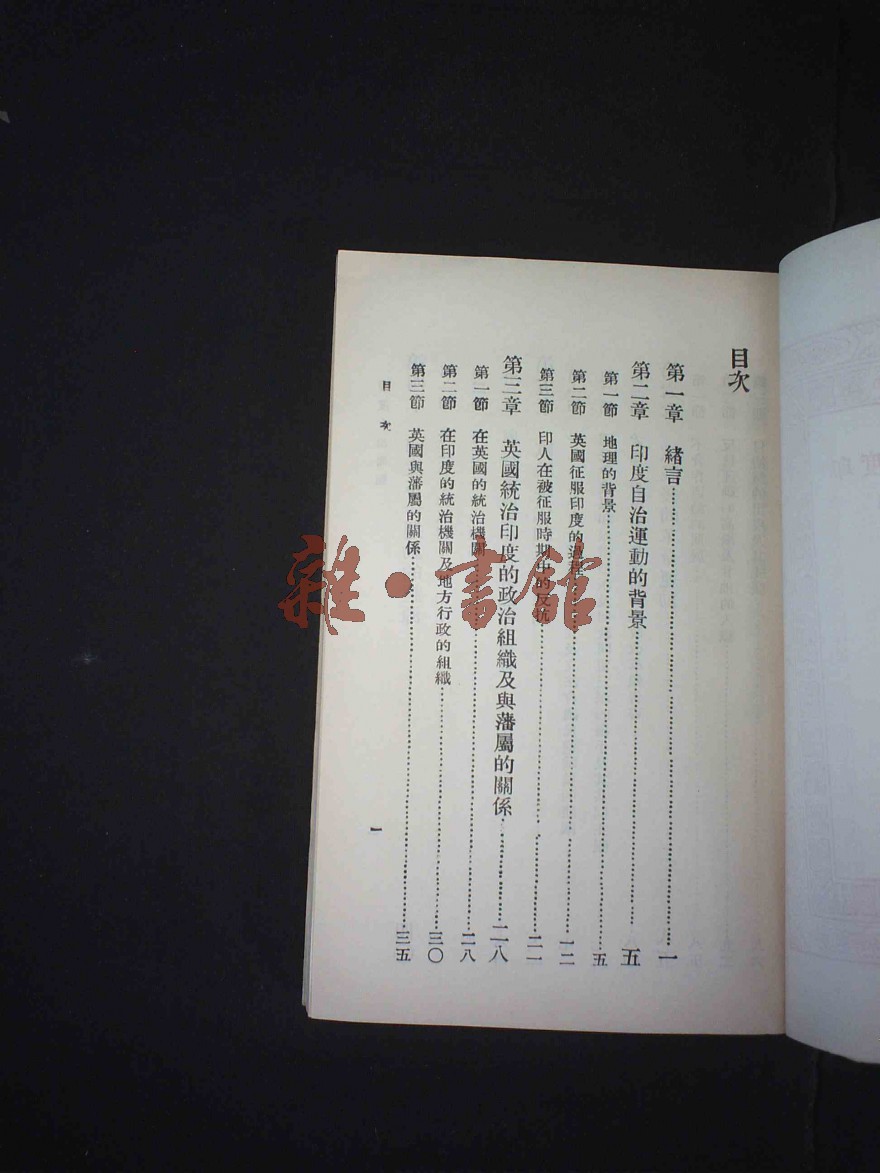 目次
第一章 緒言……一
第二章 印度自治運動的背景……五
第一節 地理的背景……五
第二節 英國征服印度的過程……一二
第三節 印人在被征服時期中的反抗……二一
第三章 英國統治印度的政治組織及與藩屬的關係……二八
第一節 在英國的統治機關……二八
第二節 在印度的統治機關及地方行政的組織……三〇
第三節 英國與藩屬的關係……三五
目次
一
雜·書館